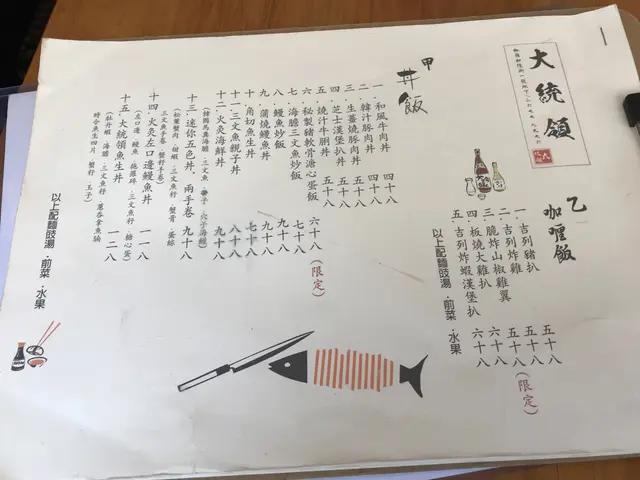 大統領
甲
丼飯
一・和風牛肉丼 四十八
二・韓汁豚肉丼 四十八
三・生薑燒豚肉丼 五十八
四・芝士漢堡扒丼 五十八
五・燒汁牛脷丼 五十八
六・秘製豬軟骨溏心蛋飯 六十八(限定)
七・海膽三文魚炒飯 七十八
八・鰻魚炒飯 九十八
九・蒲燒鰻魚丼 九十八
十・角切魚生丼 七十八
十一・三文魚親子丼 八十八
十二・火炙海鮮丼 九十八
(韓國馬糞海膽・三文魚・帶子・穴子海鰻)
十三・迷你五色丼、兩手卷 九十八
(松葉蟹肉・甜蝦・三文魚籽・蟹膏・蛋綜
三文魚手卷・蟹籽手卷)
十四・火炙左口邊鰻魚丼 一一八
(左口邊・鰻魚・拖羅碎・三文魚籽・糖心蛋)
十五・大統領魚生丼 一二八
(牡丹蝦・海膽・三文魚籽・蔥吞拿魚腩
時令魚生四片・蟹籽・玉子)
以上配麵豉湯・前菜・水果
乙
咖喱飯
一・吉列豬扒 五十八
二・吉列炸雞 五十八(限定)
三・脆炸山椒雞翼 五十八
四・板燒大雞扒 六十八
五・吉列炸蝦漢堡扒 六十八
以上配麵豉湯・前菜・水果